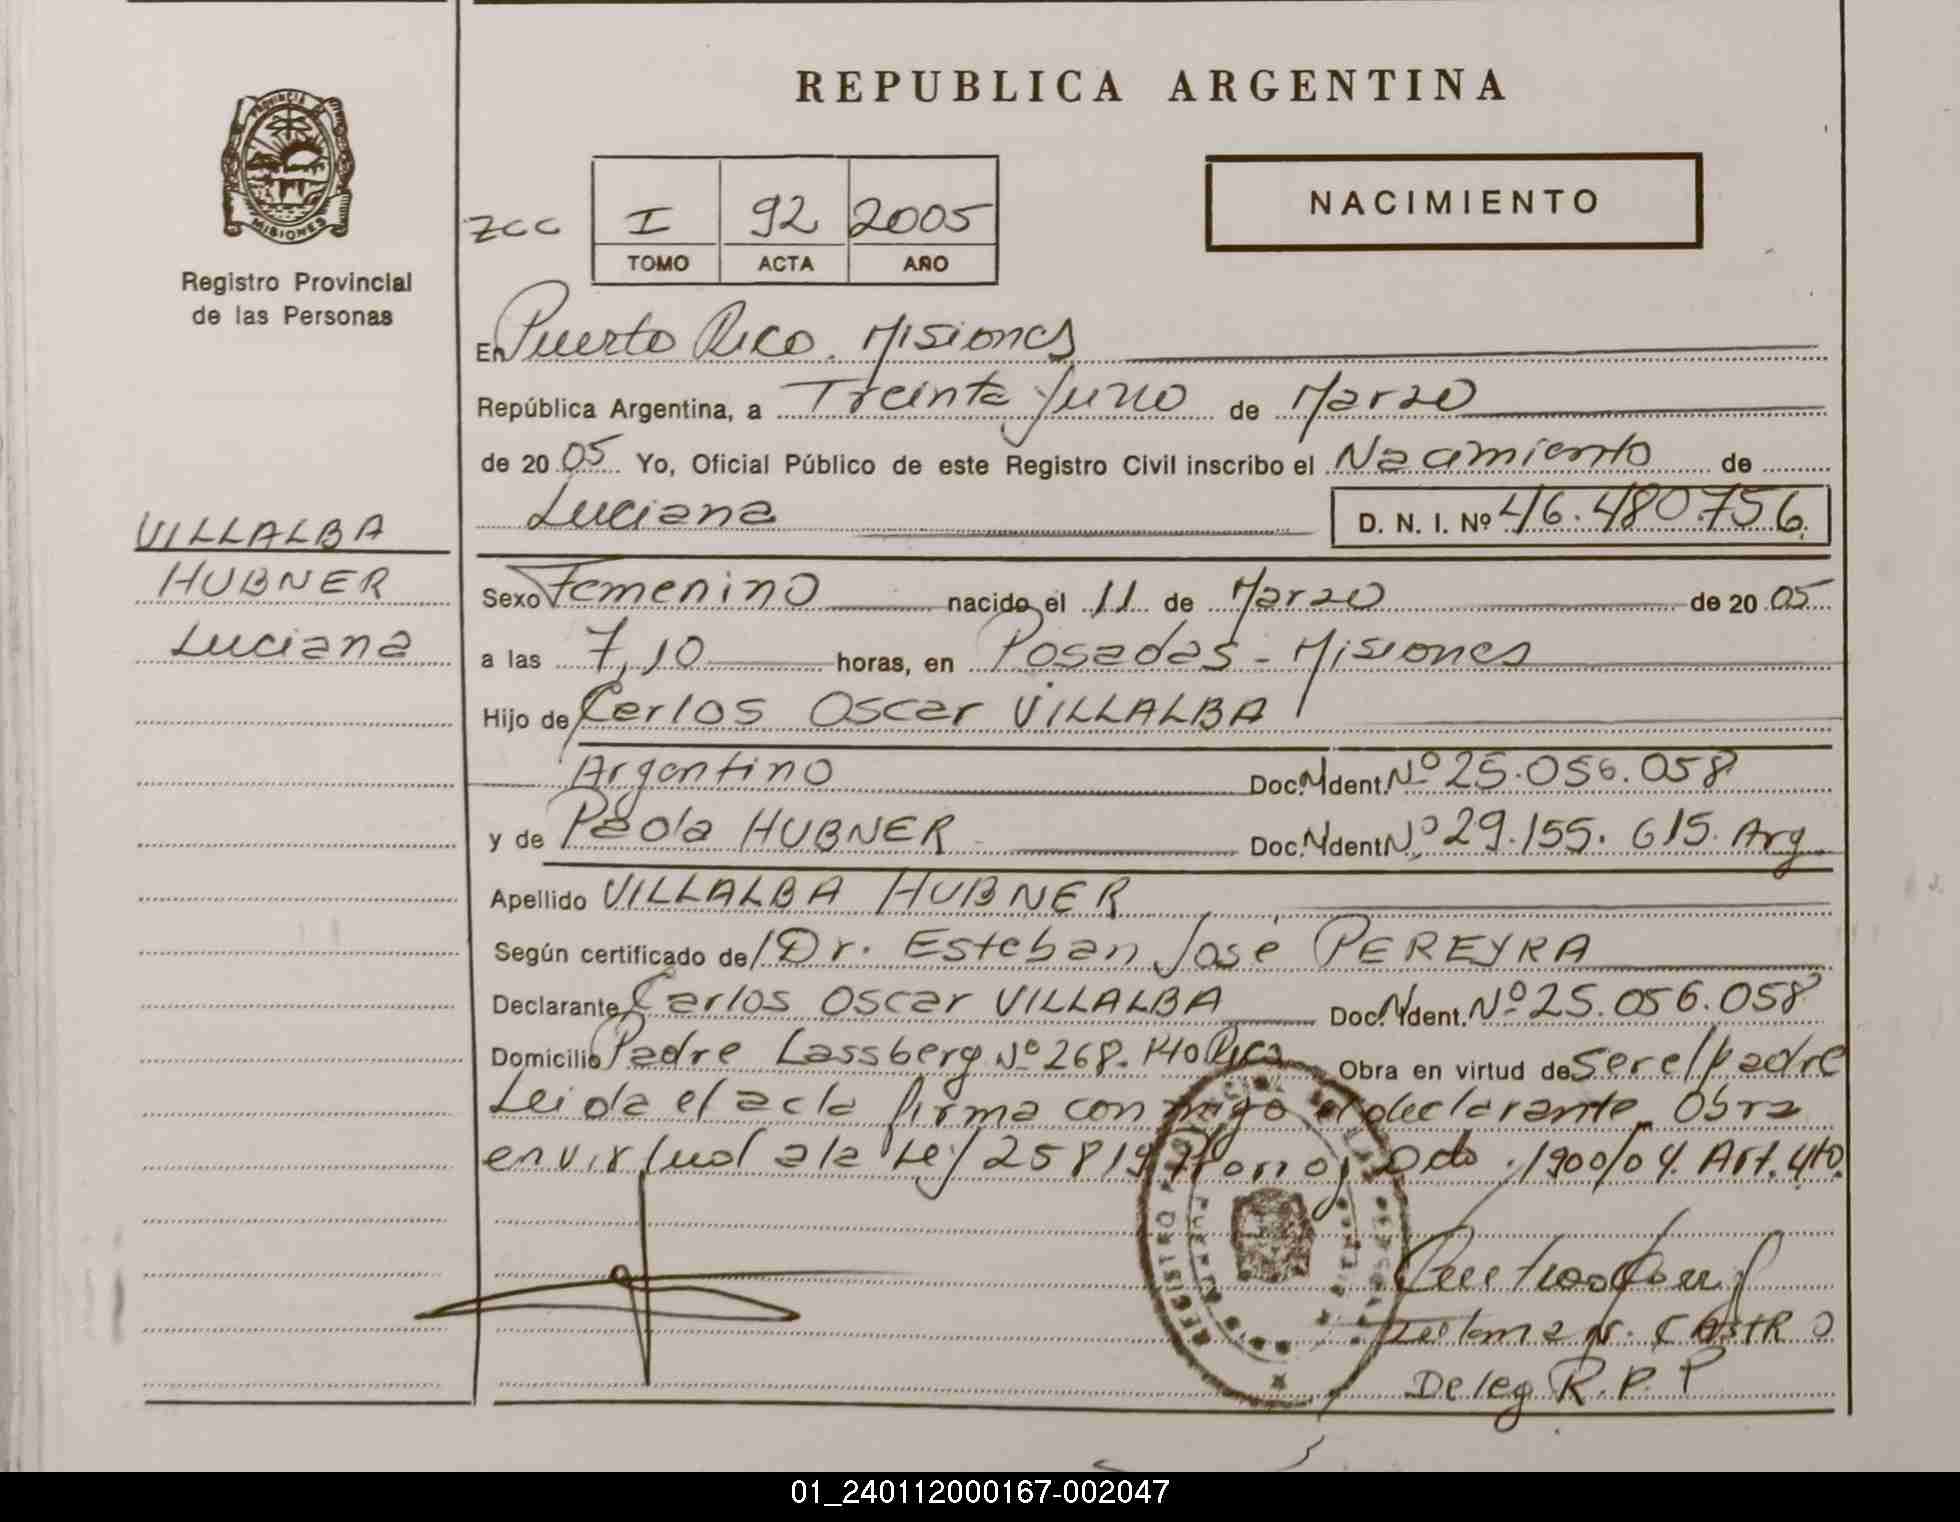 REPUBLICA ARGENTINA
PROVINCIA DE
MISIONES
Registro Provincial
de las Personas
NACIMIENTO
zcc I 92 2005
TOMO ACTA AÑO
En Puerto Rico. Misiones
República Argentina, a Treinta y uno de Marzo
de 2005 Yo, Oficial Público de este Registro Civil inscribo el Nacimiento de
Luciana D. N. I. Nº 46.480.756.
VILLALBA
HUBNER
Luciana
Sexo Femenino nacido el 11 de Marzo de 2005
a las 7,10 horas, en Posadas - Misiones
Hijo de Carlos Oscar VILLALBA
Argentino Doc. Ident. Nº 25.056.058
y de Paola HUBNER Doc. Ident. Nº 29.155.615. Arg.
Apellido VILLALBA HUBNER
Según certificado de Dr. Esteban José PEREYRA
Declarante Carlos Oscar VILLALBA Doc. Ident. Nº 25.056.058
Domicilio Padre Lassberg Nº 268. Pto Rico Obra en virtud de Ser el padre
Leida el acta firma conmigo el declarante Obra
en virtud a la Ley 25819 Dcto. 1900/04. Art. 4to.
REGISTRO
CASTRO
Deleg R. P. P
01_240112000167-002047